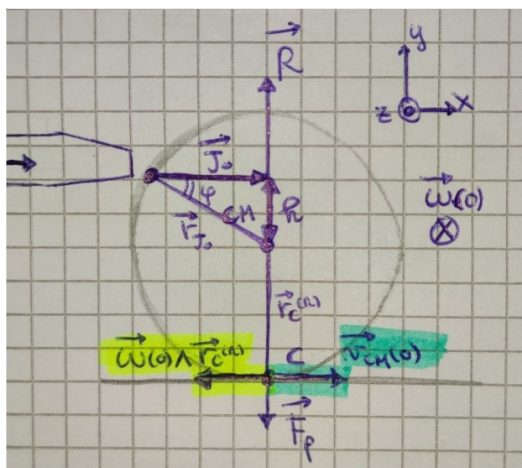 R⃗
y
z x
J⃗₀
φ
CM h
r⃗_J₀
ω⃗(0)
r⃗_C^(r)
ω⃗(0)∧r⃗_C^(r) C v⃗_CM(0)
F⃗_p